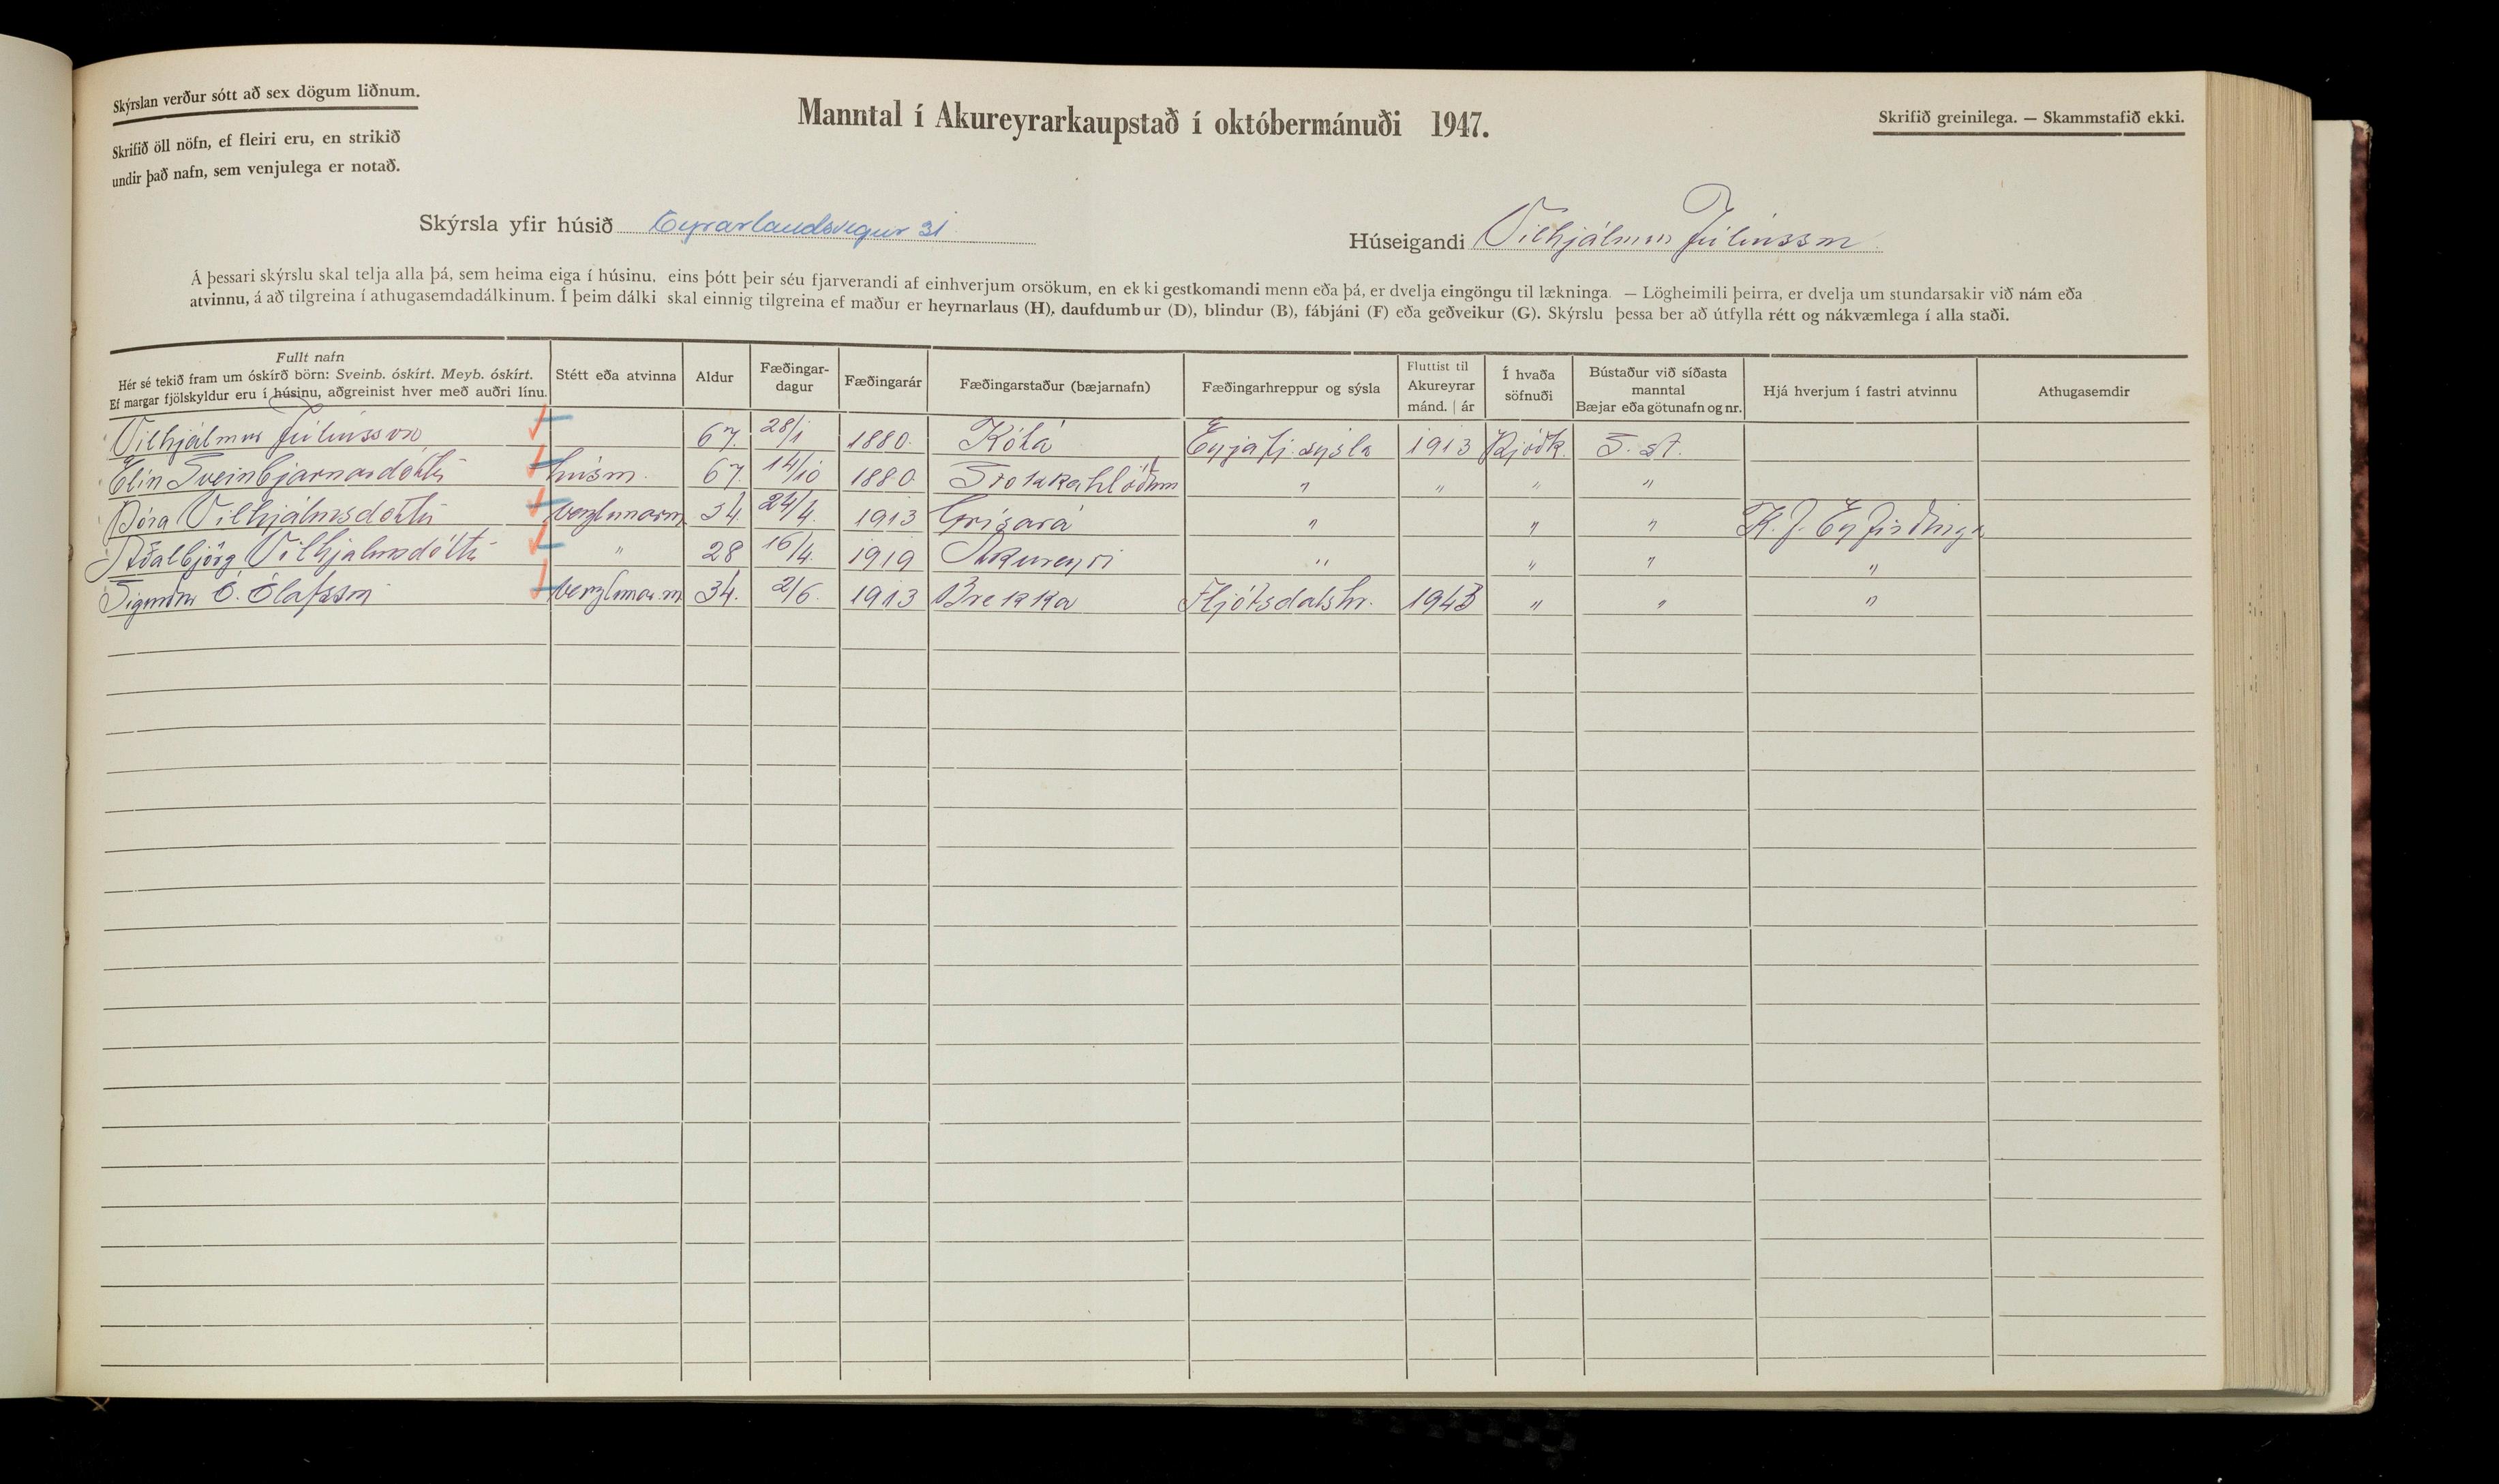 Skýrslan verður sótt að sex dögum liðnum.
Skrifið öll nöfn, ef fleiri eru, en strikið
undir það nafn, sem venjulega er notað.
Manntal í Akureyrarkaupstað í októbermánuði 1947.
Skrifið greinilega. — Skammstafið ekki.
Skýrsla yfir húsið Eyrarlandsvegur 31
Húseigandi Vilhjálmur Júlíusson
Á þessari skýrslu skal telja alla þá, sem heima eiga í húsinu, eins þótt þeir séu fjarverandi af einhverjum orsökum, en ekki gestkomandi menn eða þá, er dvelja eingöngu til lækninga. — Lögheimili þeirra, er dvelja um stundarsakir við nám eða
atvinnu, á að tilgreina í athugasemdadálkinum. Í þeim dálki skal einnig tilgreina ef maður er heyrnarlaus (H), daufdumbur (D), blindur (B), fábjáni (F) eða geðveikur (G). Skýrslu þessa ber að útfylla rétt og nákvæmlega í alla staði.
Fullt nafn
Hér sé tekið fram um óskírð börn: Sveinb. óskírt. Meyb. óskírt.
Ef margar fjölskyldur eru í húsinu, aðgreinist hver með auðri línu.
Stétt eða atvinna
Aldur
Fæðingar-
dagur
Fæðingarár
Fæðingarstaður (bæjarnafn)
Fæðingarhreppur og sýsla
Fluttist til
Akureyrar
mánd. | ár
Í hvaða
söfnuði
Bústaður við síðasta
manntal
Bæjar eða götunafn og nr.
Hjá hverjum í fastri atvinnu
Athugasemdir
Vilhjálmur Júlíusson 67. 28/1 1880. Hólá Eyjafj. sýsla 1913 Þjóðk. S. st.
Elín Sveinbjarnardóttir húsm. 67. 14/10 1880 Stokkahlöðum " " " "
Þóra Vilhjálmsdóttir verzlunarm 34. 24/4. 1913 Grísará " " " K. J. Eyfirðinga
Aðalbjörg Vilhjálmsdóttir " 28 16/4. 1919 Akureyri " " " "
Sigmundur Ó. Ólafsson verzlunar.m 34. 2/6. 1913 Brekka Fljótsdalshr. 1943 " " "